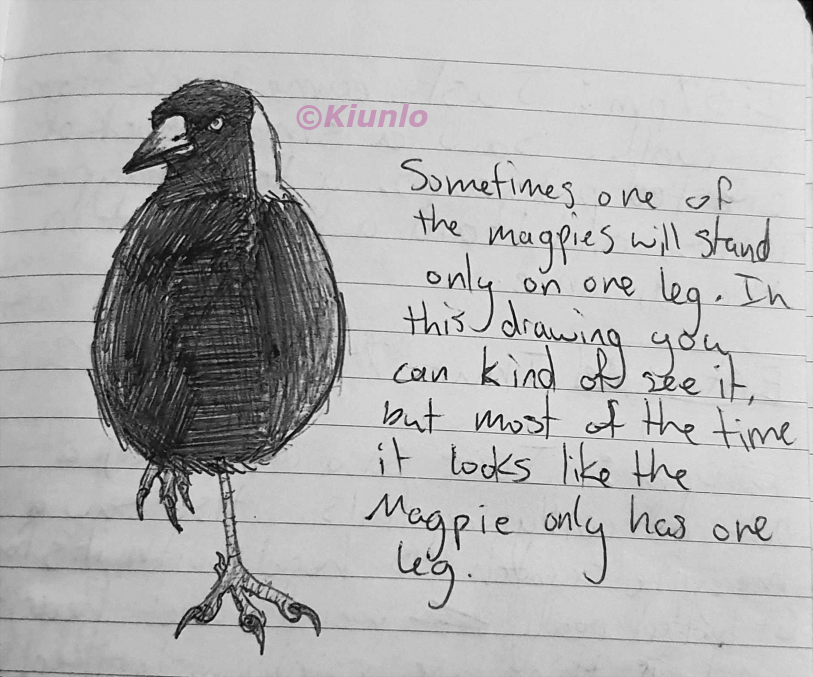 ©Kiunlo
Sometimes one of
the magpies will stand
only on one leg. In
this drawing you
can kind of see it,
but most of the time
it looks like the
Magpie only has one
leg.